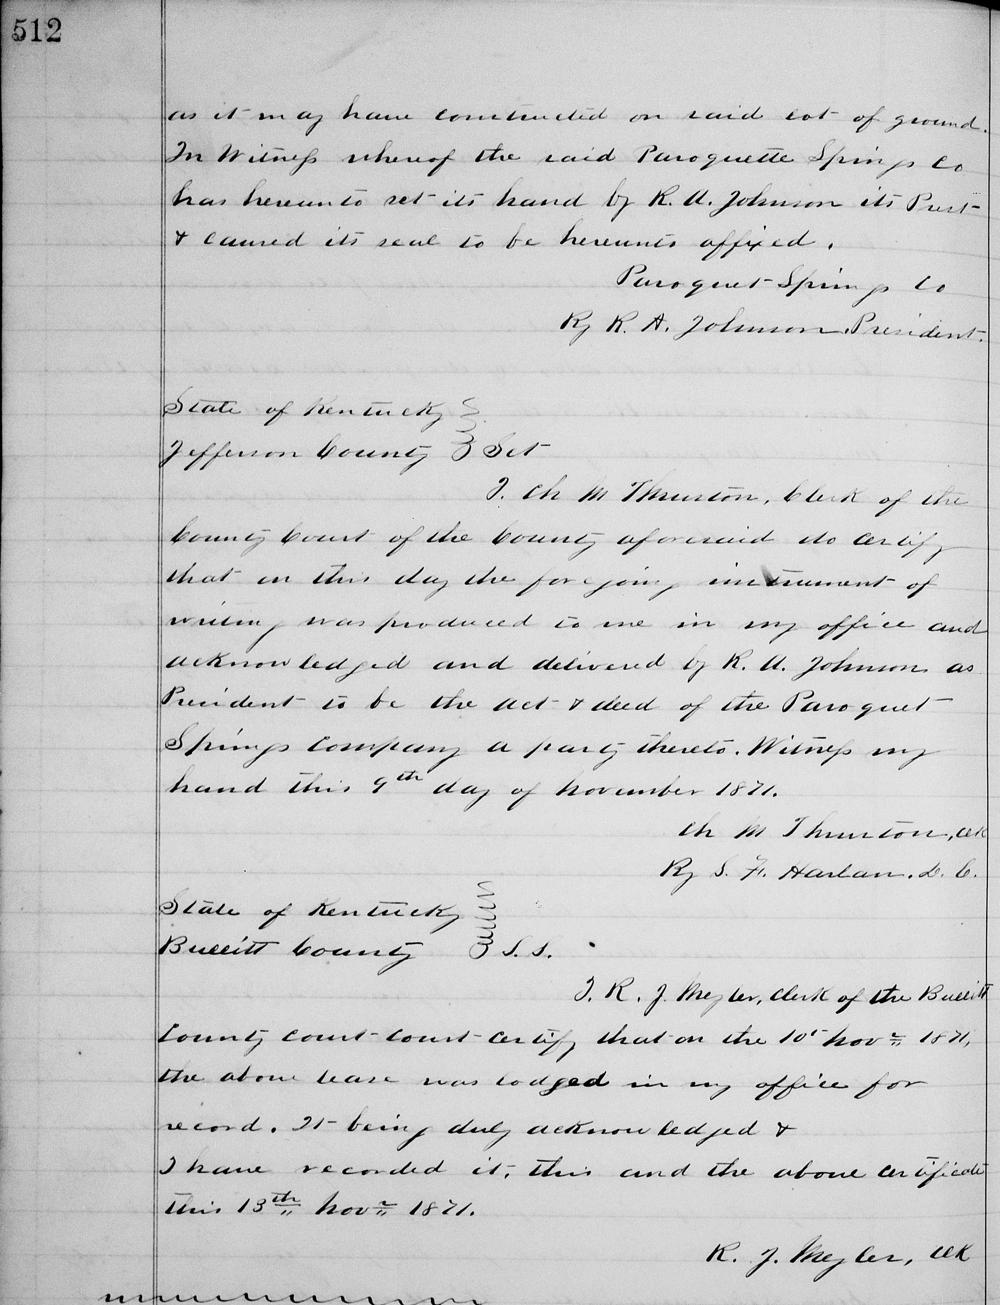 512
as it may have constructed on said lot of ground.
In Witness whereof the said Paroquette Springs Co
has hereunto set its hand by R. A. Johnson its Prest
& caused its seal to be hereunto affixed.
Paroquet Springs Co
By R. A. Johnson, President.
State of Kentucky
Jefferson County Sct
I. Ch M Thruston, Clerk of the
County Court of the County aforesaid do certify
that on this day the foregoing instrument of
writing was produced to me in my office and
acknowledged and delivered by R. A. Johnson as
President to be the act & deed of the Paroquet
Springs Company a party thereto. Witness my
hand this 9th day of November 1871.
Ch M Thruston, Clk
By S. F. Harlan. D. C.
State of Kentucky
Bullitt County S. S.
I. R. J. Meyler, Clerk of the Bullitt
County court court certify that on the 10t Novr 1871,
the above lease was lodged in my office for
record. It being duly acknowledged &
I have recorded it, this and the above certificate
this 13th Novr 1871.
R. J. Meyler, Clk